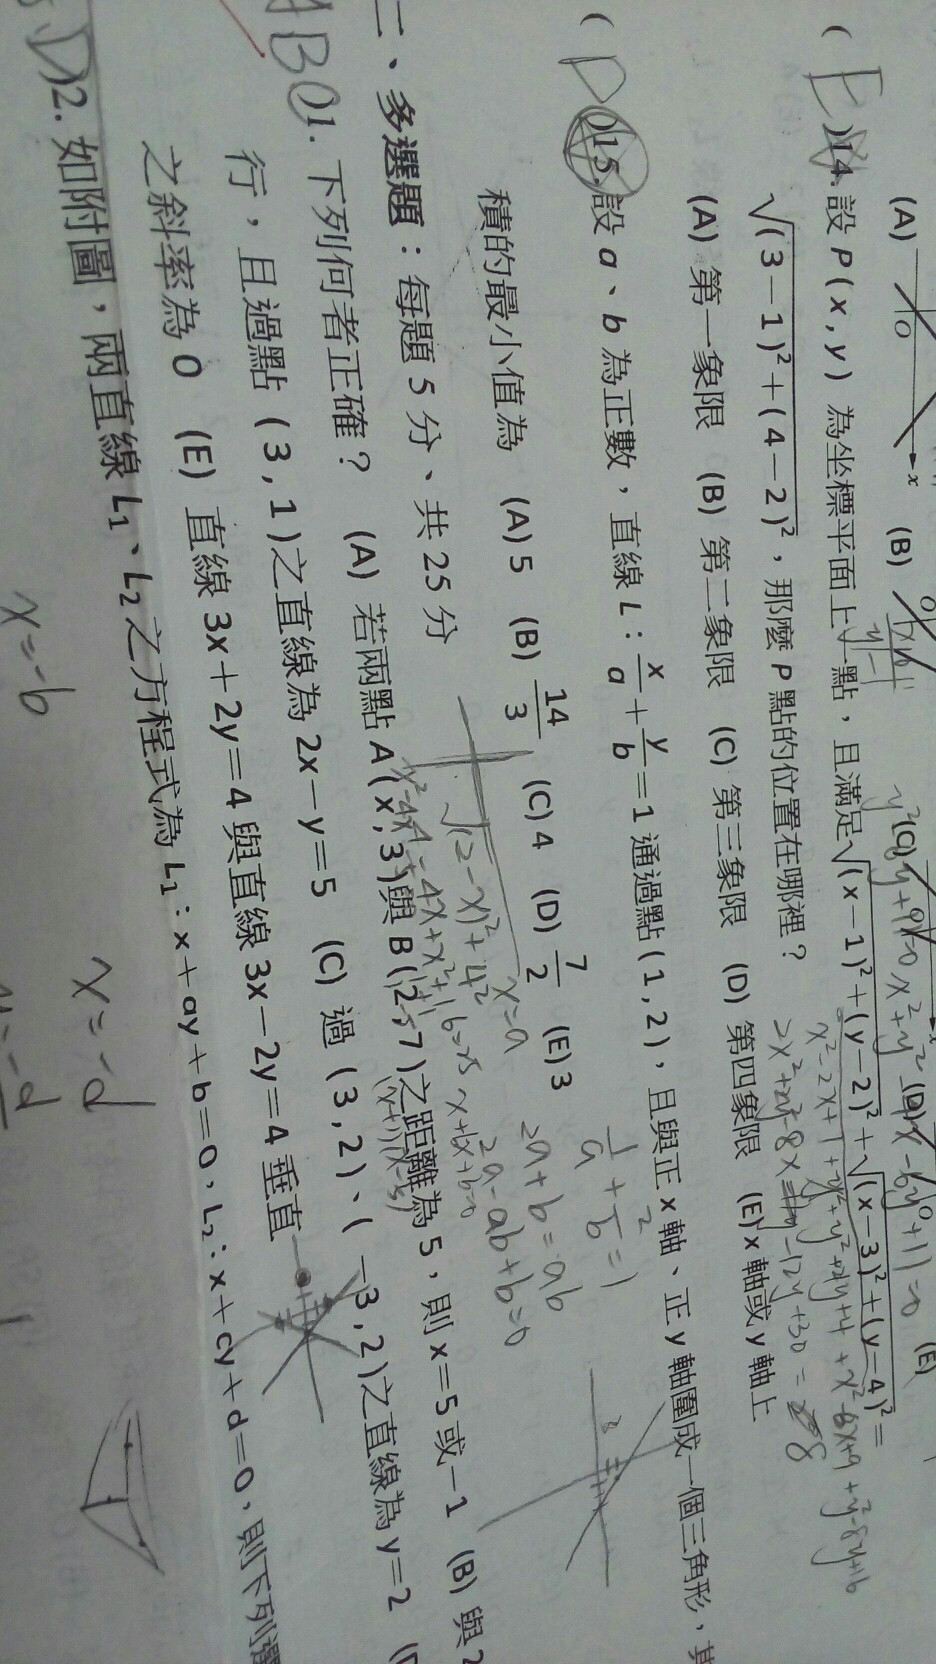 (A) O x (B) O (C) (D) x O (E)
( E )14. 設 P(x, y) 為坐標平面上一點，且滿足√(x－1)²＋(y－2)²＋√(x－3)²＋(y－4)²＝
√(3－1)²＋(4－2)²，那麼 P 點的位置在哪裡？
(A) 第一象限 (B) 第二象限 (C) 第三象限 (D) 第四象限 (E) x 軸或 y 軸上
( D )15. 設 a、b 為正數，直線 L：x/a＋y/b＝1 通過點 (1, 2)，且與正 x 軸、正 y 軸圍成一個三角形，其
積的最小值為 (A) 5 (B) 14/3 (C) 4 (D) 7/2 (E) 3
1/a + 2/b = 1
2a+b=ab
2a-ab+b=0
二、多選題：每題 5 分、共 25 分
√(2-x)²+4²
x=a
AB 1. 下列何者正確？ (A) 若兩點 A(x, 3)與 B(2, 7)之距離為 5，則 x＝5 或－1 (B) 與 2
行，且過點 (3, 1)之直線為 2x－y＝5 (C) 過 (3, 2)、(－3, 2)之直線為 y＝2 (D
之斜率為 0 (E) 直線 3x＋2y＝4 與直線 3x－2y＝4 垂直
D 2. 如附圖，兩直線 L₁、L₂ 之方程式為 L₁：x＋ay＋b＝0，L₂：x＋cy＋d＝0，則下列選
x=-b
x=-d